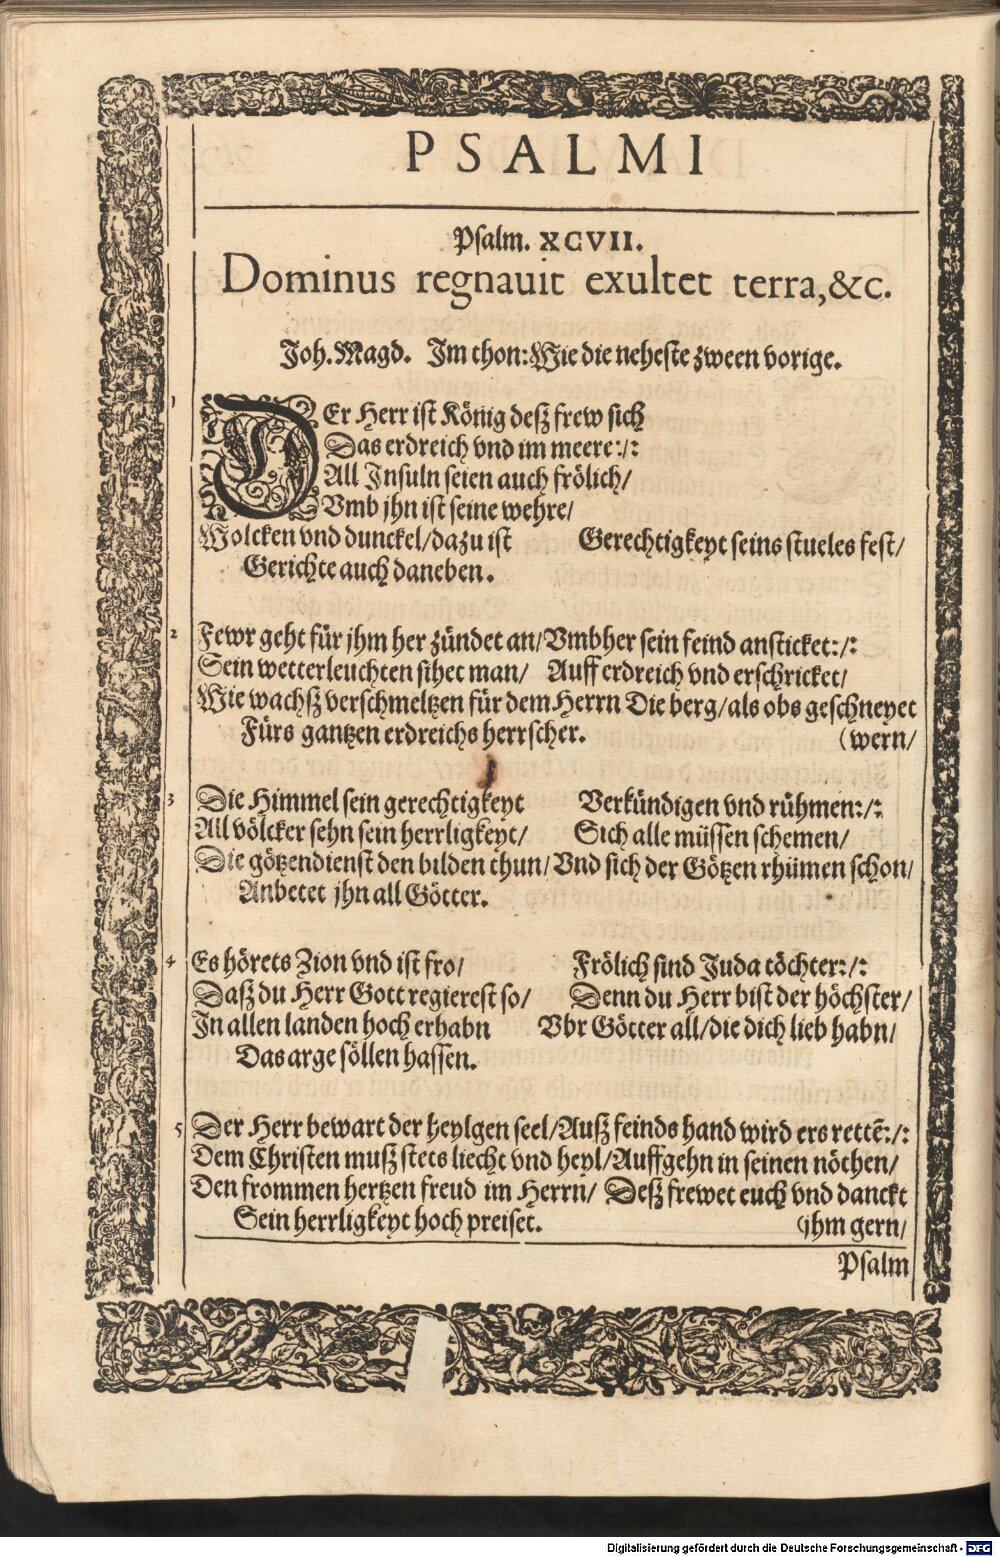 PSALMI
Psalm. XCVII.
Dominus regnauit exultet terra,&c.
Joh. Magd. Im thon: Wie die neheste zween vorige.
1 DEr Herr ist König desz frew sich
Das erdreich vnd im meere:/:
All Insuln seien auch frölich/
Vmb jhn ist seine wehre/
Wolcken vnd dunckel/dazu ist Gerechtigkeyt seins stueles fest/
Gerichte auch daneben.
2 Fewr geht für jhm her zündet an/Vmbher sein feind ansticket:/:
Sein wetterleuchten sihet man/ Auff erdreich vnd erschricket/
Wie wachsz verschmeltzen für dem Herrn Die berg/als obs geschneyet
Fürs gantzen erdreichs herrscher. (wern/
3 Die Himmel sein gerechtigkeyt Verkündigen vnd rühmen:/:
All völcker sehn sein herrligkeyt/ Sich alle müssen schemen/
Die götzendienst den bilden thun/Vnd sich der Götzen rhümen schon/
Anbetet jhn all Götter.
4 Es hörets Zion vnd ist fro/ Frölich sind Juda töchter:/:
Dasz du Herr Gott regierest so/ Denn du Herr bist der höchster/
In allen landen hoch erhabn Vbr Götter all/die dich lieb habn/
Das arge söllen hassen.
5 Der Herr bewart der heylgen seel/Ausz feinds hand wird ers rettē:/:
Dem Christen musz stets liecht vnd heyl/Auffgehn in seinen nöthen/
Den frommen hertzen freud im Herrn/ Desz frewet euch vnd danckt
Sein herrligkeyt hoch preiset. (jhm gern/
Psalm
Digitalisierung gefördert durch die Deutsche Forschungsgemeinschaft - DFG